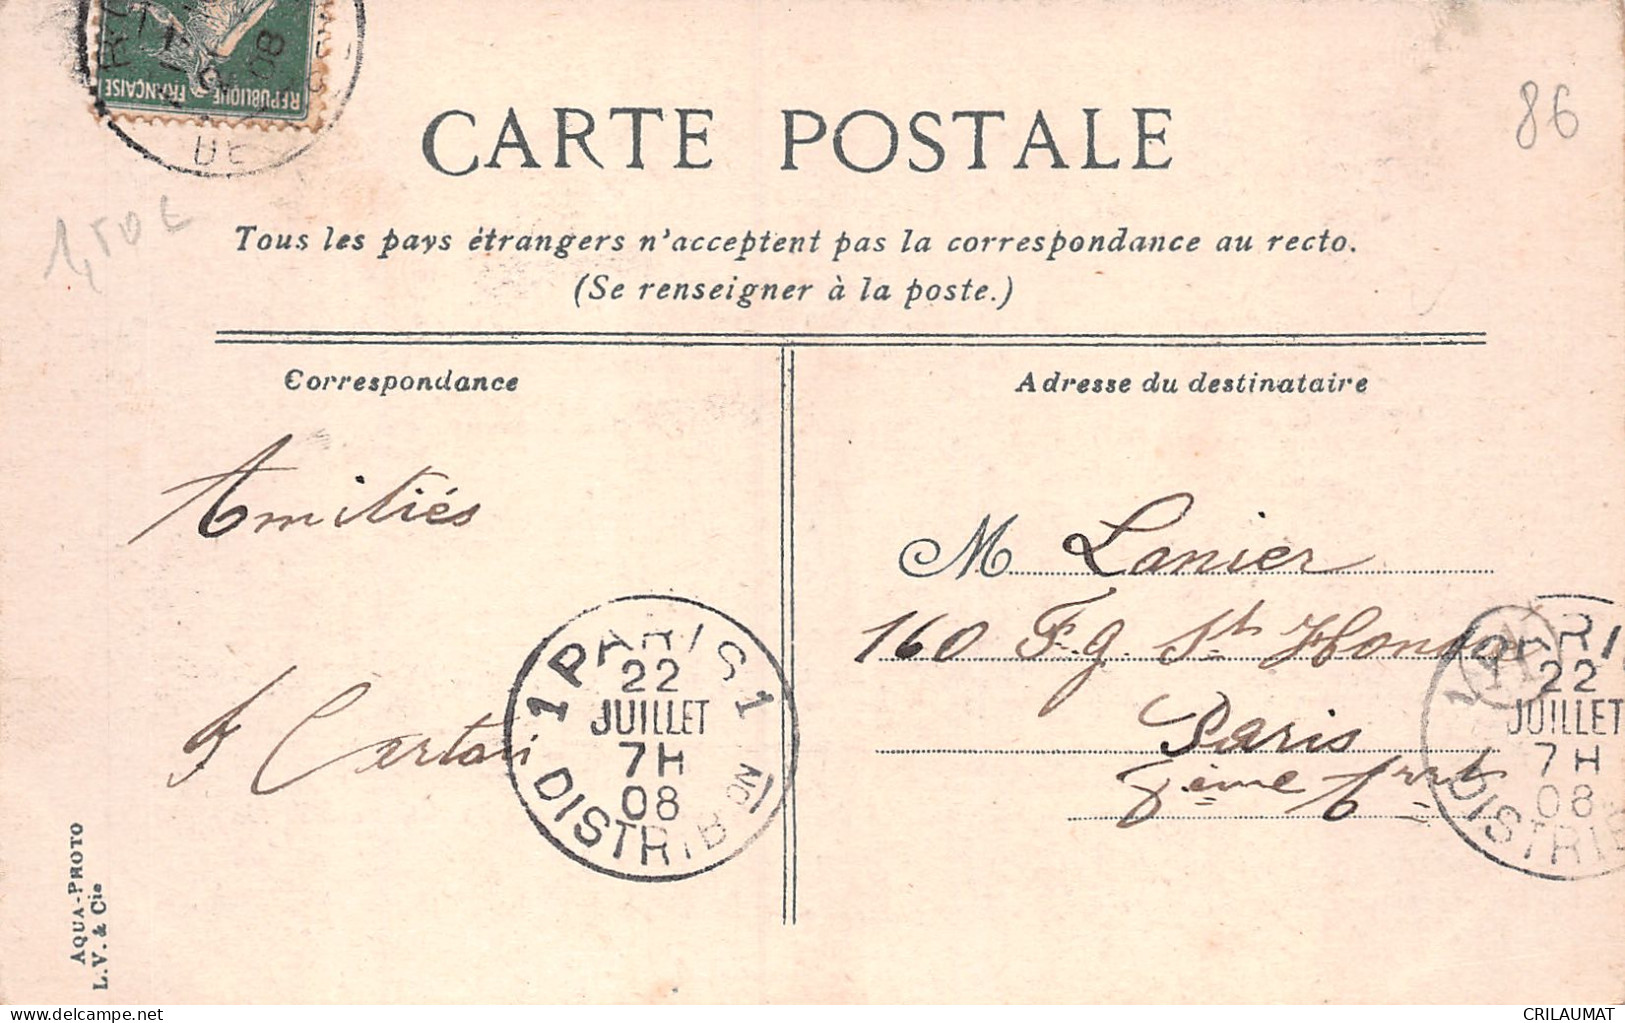 REPUBLIQUE FRANÇAISE
08
DE
CARTE POSTALE
86
1,50 €
Tous les pays étrangers n'acceptent pas la correspondance au recto.
(Se renseigner à la poste.)
Correspondance
Adresse du destinataire
Amitiés
M Lanier
160 F.g. St Honoré
Paris
8ème Arrt
1 PARIS 1
22
JUILLET
7H
08
DISTRIBON
PARI
22
JUILLET
7H
08
DISTRIB
AQUA-PHOTO
L.V. & Cie
CRILAUMAT